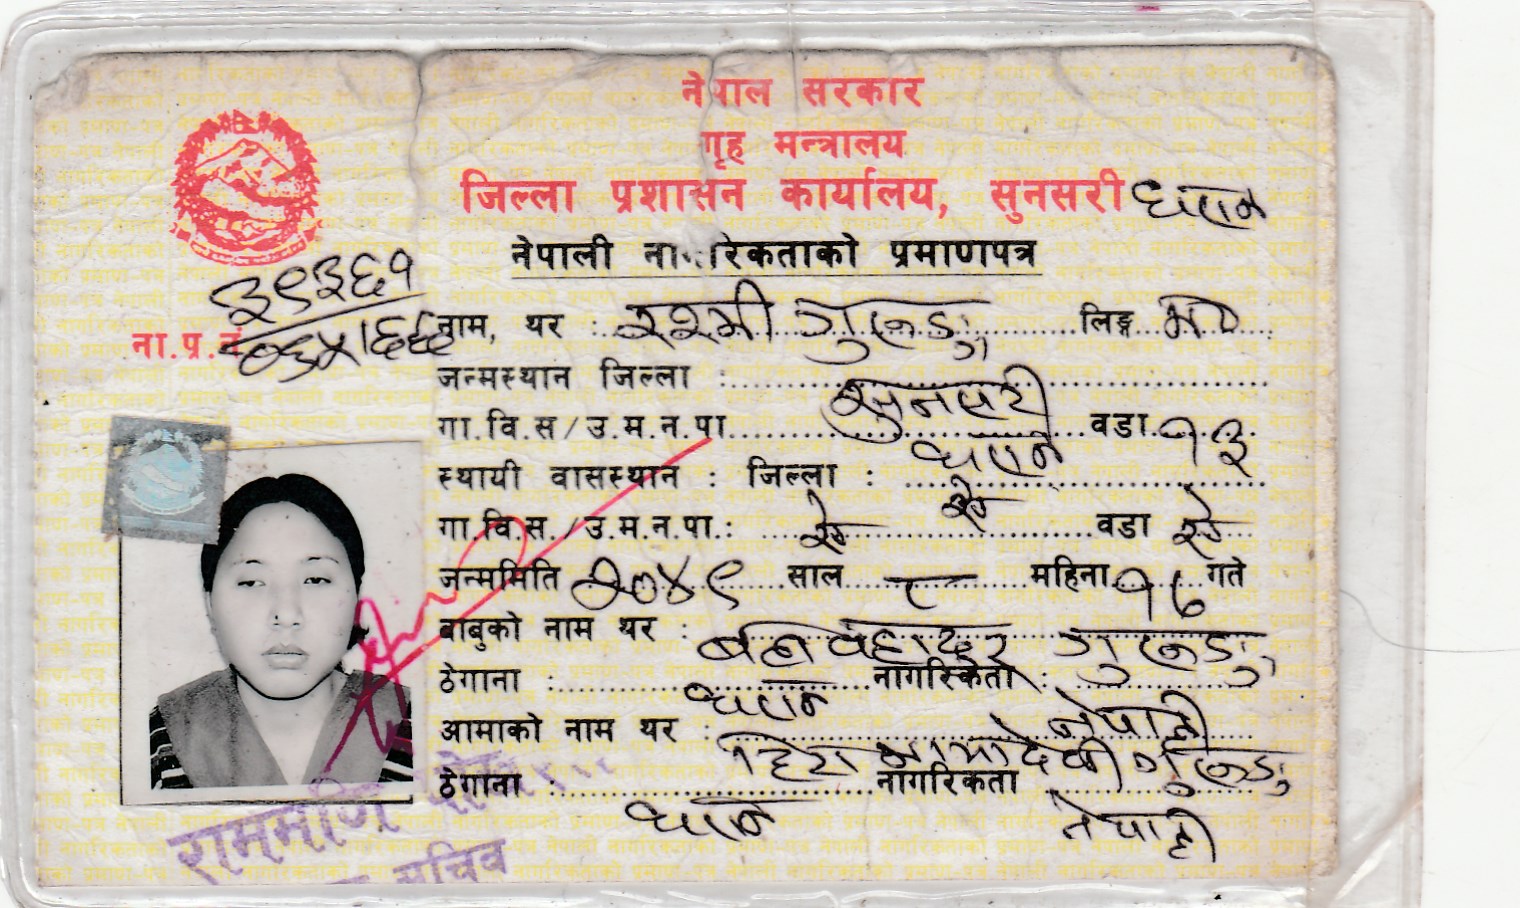 नेपाल सरकार
गृह मन्त्रालय
जिल्ला प्रशासन कार्यालय, सुनसरी धरान
नेपाली नागरिकताको प्रमाणपत्र
३९३६१
ना.प्र.नं.
नाम, थर : रश्मी गुरुङ्ग लिङ्ग
जन्मस्थान जिल्ला : सुनसरी
गा.वि.स/उ.म.न.पा. धरान वडा १३
स्थायी वासस्थान : जिल्ला : ऐ
गा.वि.स./उ.म.न.पा.: ऐ वडा ऐ
जन्ममिति २०४९ साल ८ महिना १७ गते
बाबुको नाम थर : बल बहादुर गुरुङ्ग
ठेगाना : धरान नागरिकता : नेपाली
आमाको नाम थर : देवी गुरुङ्ग
ठेगाना : धरान नागरिकता नेपाली
राममणि
सचिव